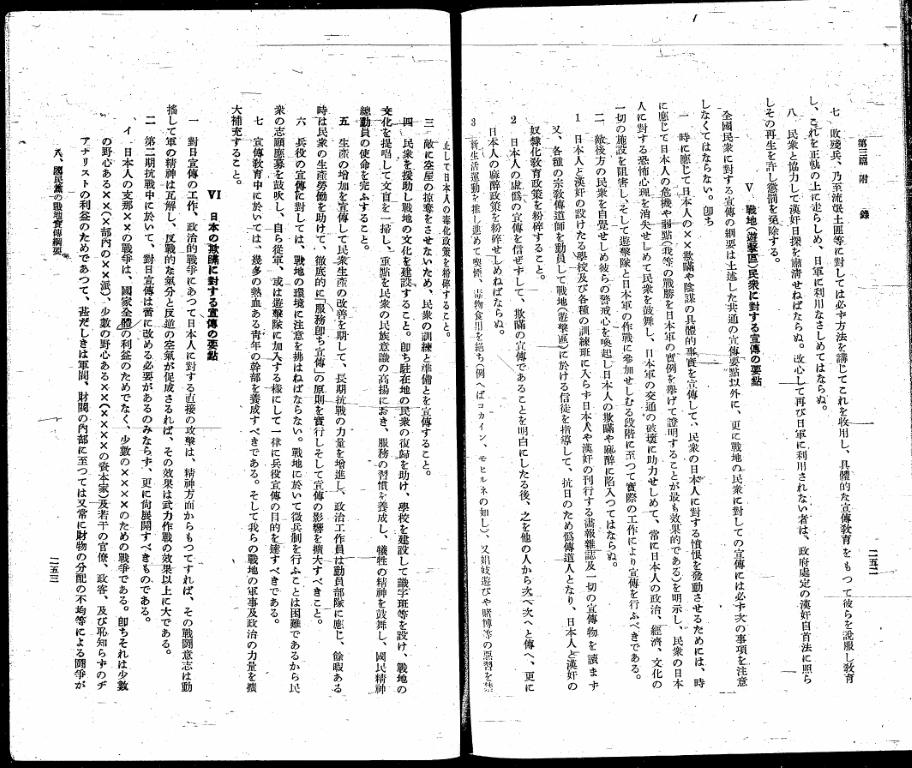 第三編 附錄
二五二
七 敗殘兵、乃至流氓土匪等に對しては必ず方法を講じてこれを收用し、具體的な宣傳敎育をもつて彼らを說服し敎育
し、これを正軌の上に走らしめ、日軍に利用なさしめてはならぬ。
八 民衆と協力して漢奸日探を肅淸せねばならぬ。改心して再び日軍に利用されない者は、政府處定の漢奸自首法に照ら
しその再生を許し懲罰を免除する。
V 戰地(遊擊區)民衆に對する宣傳の要點
全國民衆に對する宣傳の綱要は上述した共通の宣傳要點以外に、更に戰地の民衆に對しての宣傳には必ず次の事項を注意
しなくてはならない。卽ち
一 時に應じて日本人の××欺瞞や陰謀の具體的事實を宣傳して、民衆の日本人に對する憤恨を發動させるためには、時
に應じて日本人の危機や弱點(我等の戰勝を日本軍の實例を擧げて證明することが最も效果的である)を明示し、民衆の日本
人に對する恐怖心理を消失せしめて民衆を鼓舞し、日本軍の交通の破壞に助力せしめて、常に日本人の政治、經濟、文化の
一切の施設を阻害し、そして遊擊隊と日本軍の作戰に參加せしむる段階に至つて實際の工作により宣傳を行ふべきである。
二 敵後方の民衆を自覺せしめ彼らの警戒心を喚起し日本人の欺瞞や麻醉に陷入つてはならぬ。
1 日本人と漢奸の設けたる學校及び各種の訓練班に入らず日本人や漢奸の刊行する畫報雜誌及一切の宣傳物を讀まず
又、各種の宗敎傳道師を動員して戰地(遊擊區)に於ける信徒を指導して、抗日のため僞傳道人となり、日本人と漢奸の
奴隸化敎育政策を粉碎すること。
2 日本人の虛僞の宣傳を信ぜずして、欺瞞の宣傳であることを明白にしたる後、之を他の人から次へ次へと傳へ、更に
日本人の麻醉政策を粉碎せしめねばならぬ。
3 新生活運動を推し進めて喫煙、毒物食用を絕ち(例へばコカイン、モヒルネの如し)、又娼妓遊びや賭博等の惡習を禁
止して日本人の毒化政策を粉碎すること。
三 敵に家屋の掠奪をさせないため、民衆の訓練と準備とを宣傳すること。
四 民衆を援助し戰地の文化を建設すること。卽ち駐在地の民衆の復歸を助け、學校を建設して識字班等を設け、戰地の
文化を提唱して文盲を一掃し、重點を民衆の民族意識の高揚におき、服務の習慣を養成し、犧牲の精神を鼓舞し、國民精神
總動員の使命を完ふすること。
五 生產の增加を宣傳して民衆生產の改善を期して、長期抗戰の力量を增進し、政治工作員は動員部隊に應じ、餘暇ある
時は民衆の生產勞働を助けて、徹底的に「服務卽ち宣傳」の原則を實行しそして宣傳の影響を擴大すべきこと。
六 兵役の宣傳に對しては、戰地の環境に注意を拂はねばならない。戰地に於いて徵兵制を行ふことは困難であるから民
衆の志願應募を鼓吹し、自ら從軍、或は遊擊隊に加入する樣にして一律に兵役宣傳の目的を達すべきである。
七 宣傳敎育中に於いては、幾多の熱血ある靑年の幹部を養成すべきである。そして我らの戰地の軍事及政治の力量を擴
大補充すること。
VI 日本の欺瞞に對する宣傳の要點
一 對日宣傳の工作、政治的戰爭にあつて日本人に對する直接の攻擊は、精神方面からもつてすれば、その戰鬪意志は動
搖して軍の精神は瓦解し、反戰的な氣分と反逆の空氣が促成されれば、その效果は武力作戰の效果以上に大である。
二 第二期抗戰中に於いて、對日宣傳は啻に改める必要があるのみならず、更に尙展開すべきものである。
イ 日本人の支那××の戰爭は、國家全體の利益のためでなく、少數の××××のための戰爭である。卽ちそれは少數
の野心ある××(×部內の×××派)、少數の野心ある××(××××の資本家)及若干の官僚、政客、及び恥知らずのヂ
アナリストの利益のためであつて、甚だしきは軍閥、財閥の內部に至つては又常に財物の分配の不均等による鬪爭が
八、國民黨の戰地宣傳綱要
二五三